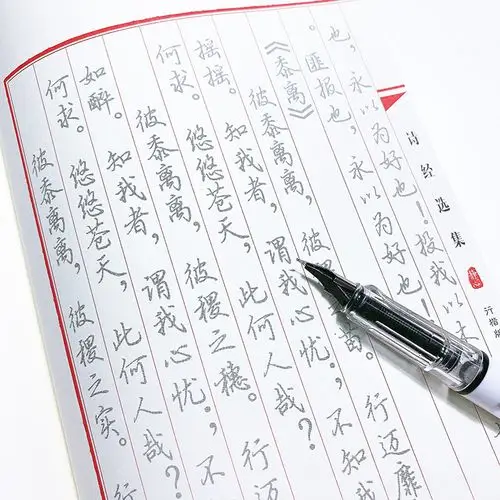 诗经选集
行楷
也，永以为好也！投我以
。匪报也，永以为好也！
《黍离》
彼黍离离，彼苗。行迈靡
摇摇。知我者，谓我心忧，不知我
何求。悠悠苍天，此何人哉？
彼黍离离，彼稷之穗。行
如醉。知我者，谓我心忧，不
何求。悠悠苍天，此何人哉？
彼黍离离，彼稷之实。行